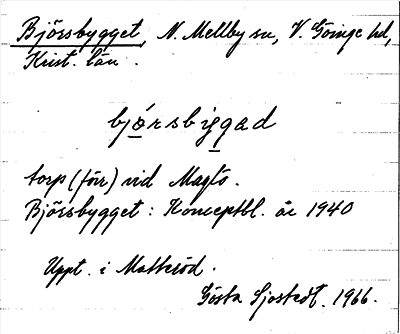 Björsbygget, N. Mellby sn, V. Göinge hd,
Krist. län.
bjo̲rsbi̲ggad
torp (förr) vid Maglö.
Björsbygget: Konceptbl. år 1940
Uppt. i Matteröd.
Gösta Sjostedt. 1966.